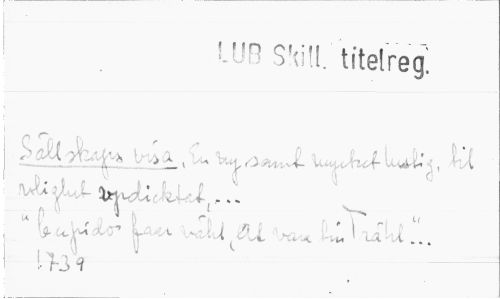 LUB Skill. titelreg.
Sällskaps visa, En ny samt mycket lustig, til
rolighet updicktat,...
"Cupido far wähl, At vara din Trähl"...
1739